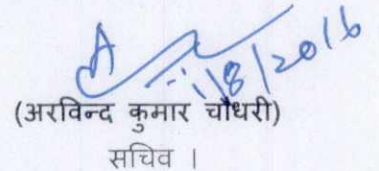 1/8/2016
(अरविन्द कुमार चौधरी)
सचिव ।